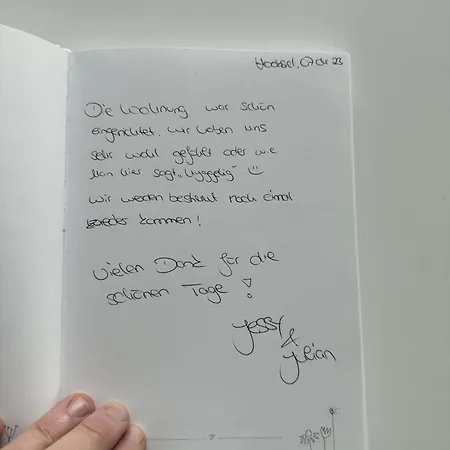 07.04.23
Die Wohnung war schön
eingerichtet. Wir haben uns
sehr wohl gefühlt oder wie
man hier sagt "hyggelig" ☺
Wir werden bestimmt noch einmal
wieder kommen!
Vielen Dank für die
schönen Tage!
Jessy
&
Julian